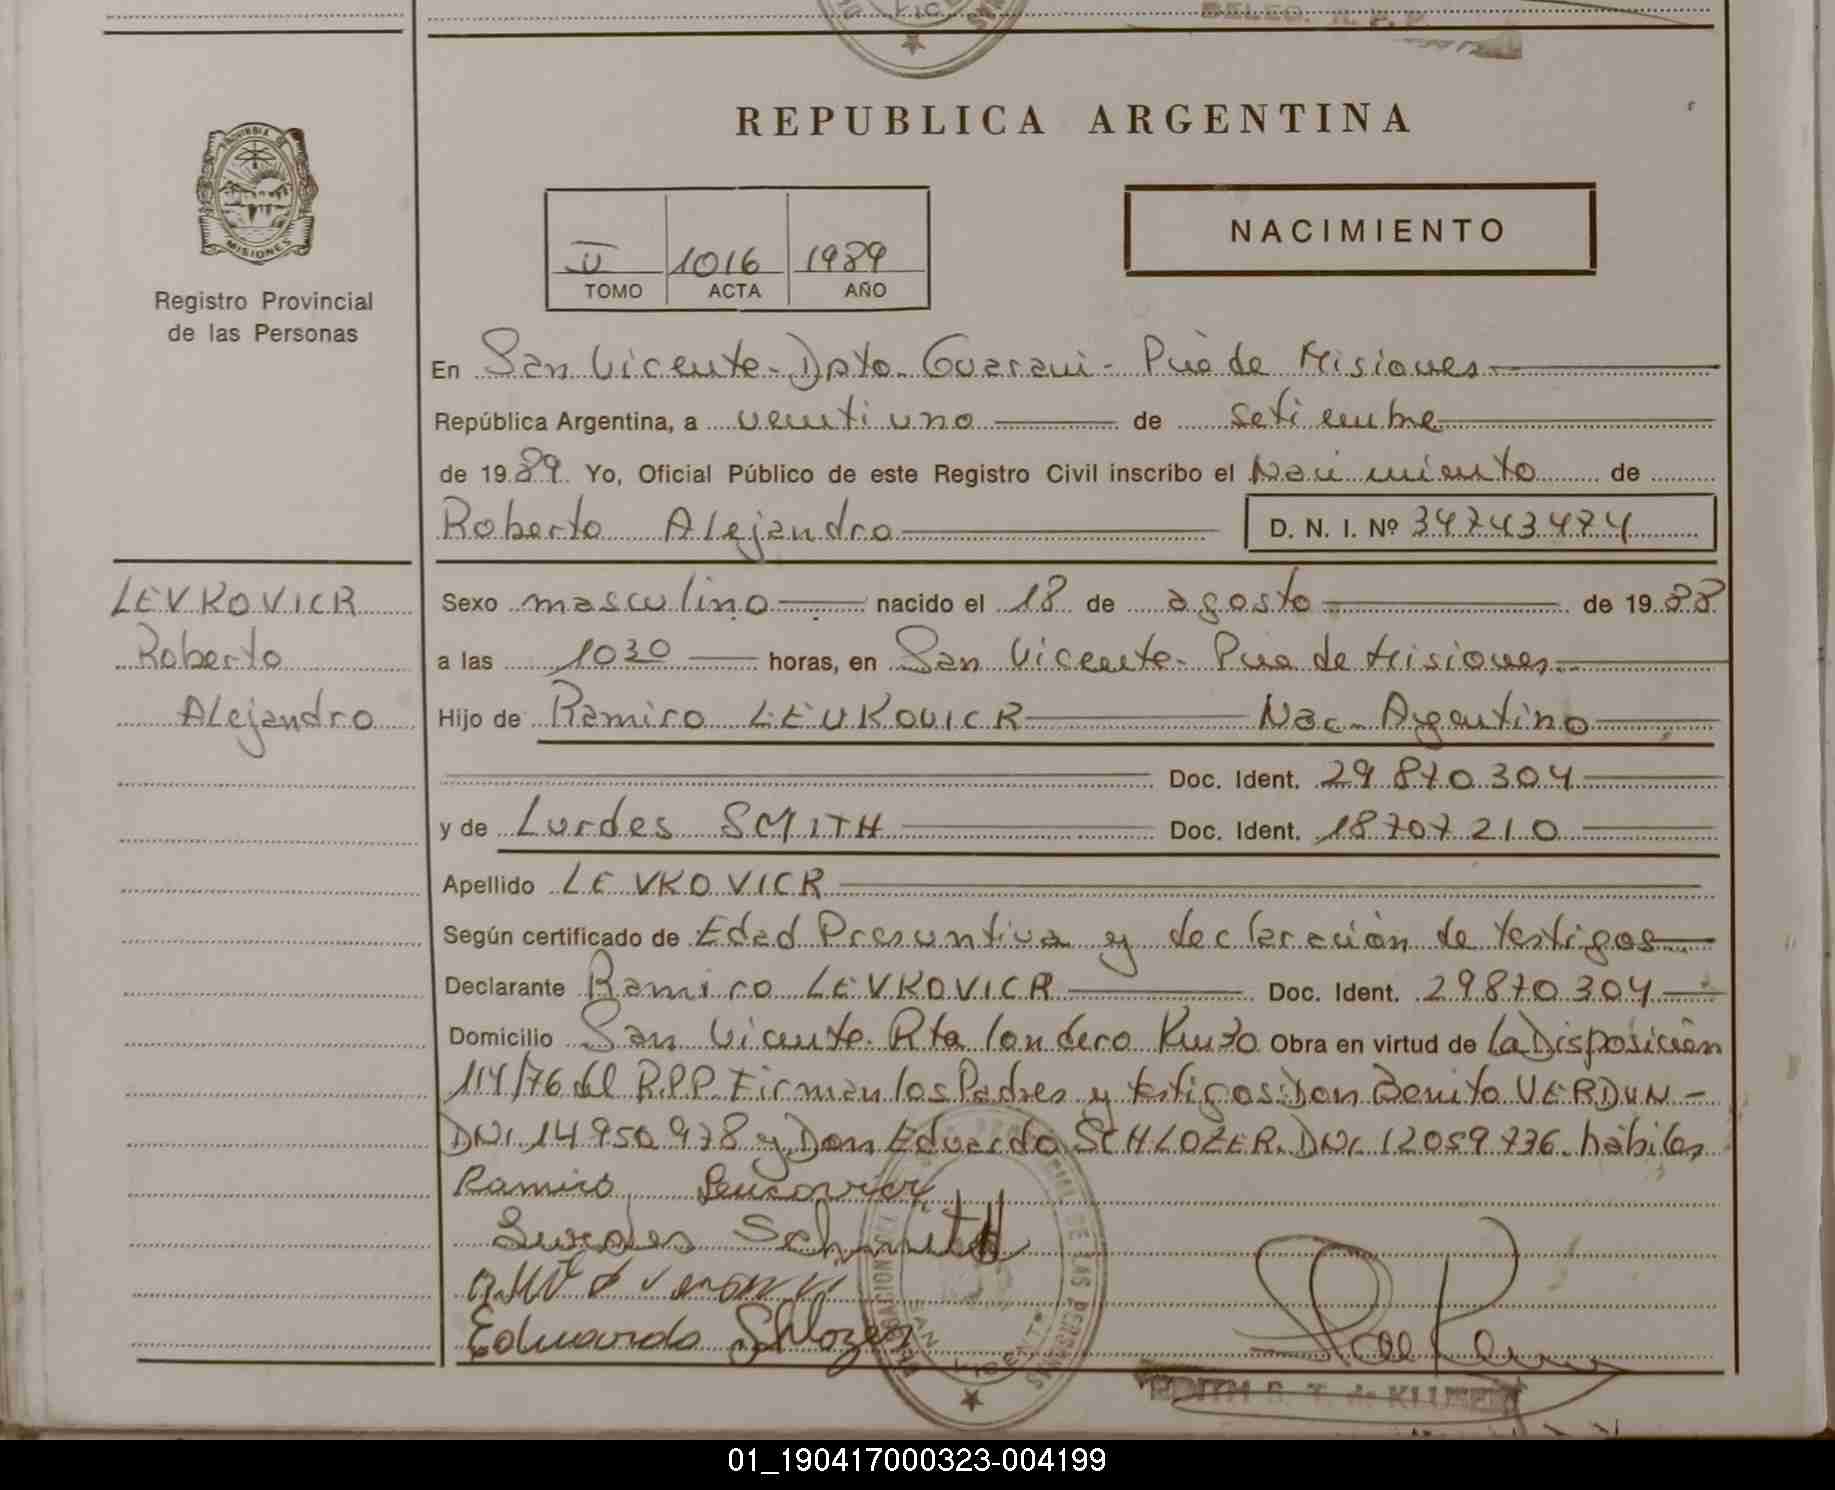 REPUBLICA ARGENTINA
PROVINCIA DE
MISIONES
Registro Provincial
de las Personas
NACIMIENTO
II 1016 1989
TOMO ACTA AÑO
En San Vicente - Dpto. Guarani - Pcia de Misiones
República Argentina, a veintiuno de setiembre
de 1989. Yo, Oficial Público de este Registro Civil inscribo el Nacimiento de
Roberto Alejandro D. N. I. Nº 34743474
LEVKOVICR
Roberto
Alejandro
Sexo masculino nacido el 18 de agosto de 1988
a las 1030 horas, en San Vicente - Pcia de Misiones
Hijo de Ramiro LEVKOVICR Nac- Argentino
Doc. Ident. 29.870.304
y de Lurdes SMITH Doc. Ident. 18707210
Apellido LEVKOVICR
Según certificado de Edad Presuntiva y declaración de testigos
Declarante Ramiro LEVKOVICR Doc. Ident. 29870304
Domicilio San Vicente. Rta Londero Km30 Obra en virtud de La Disposición
114/76 del R.P.P. Firman los Padres y testigos: Don Benito VERDUN -
DNI. 14950978 y Don Eduardo SCHLOZER. DNI. 12059736. hábiles
Ramiro
Lurdes Schmith
Eduardo Shlozer
SAN VICENTE
EDITH S. T. de KLUSEN
01_190417000323-004199